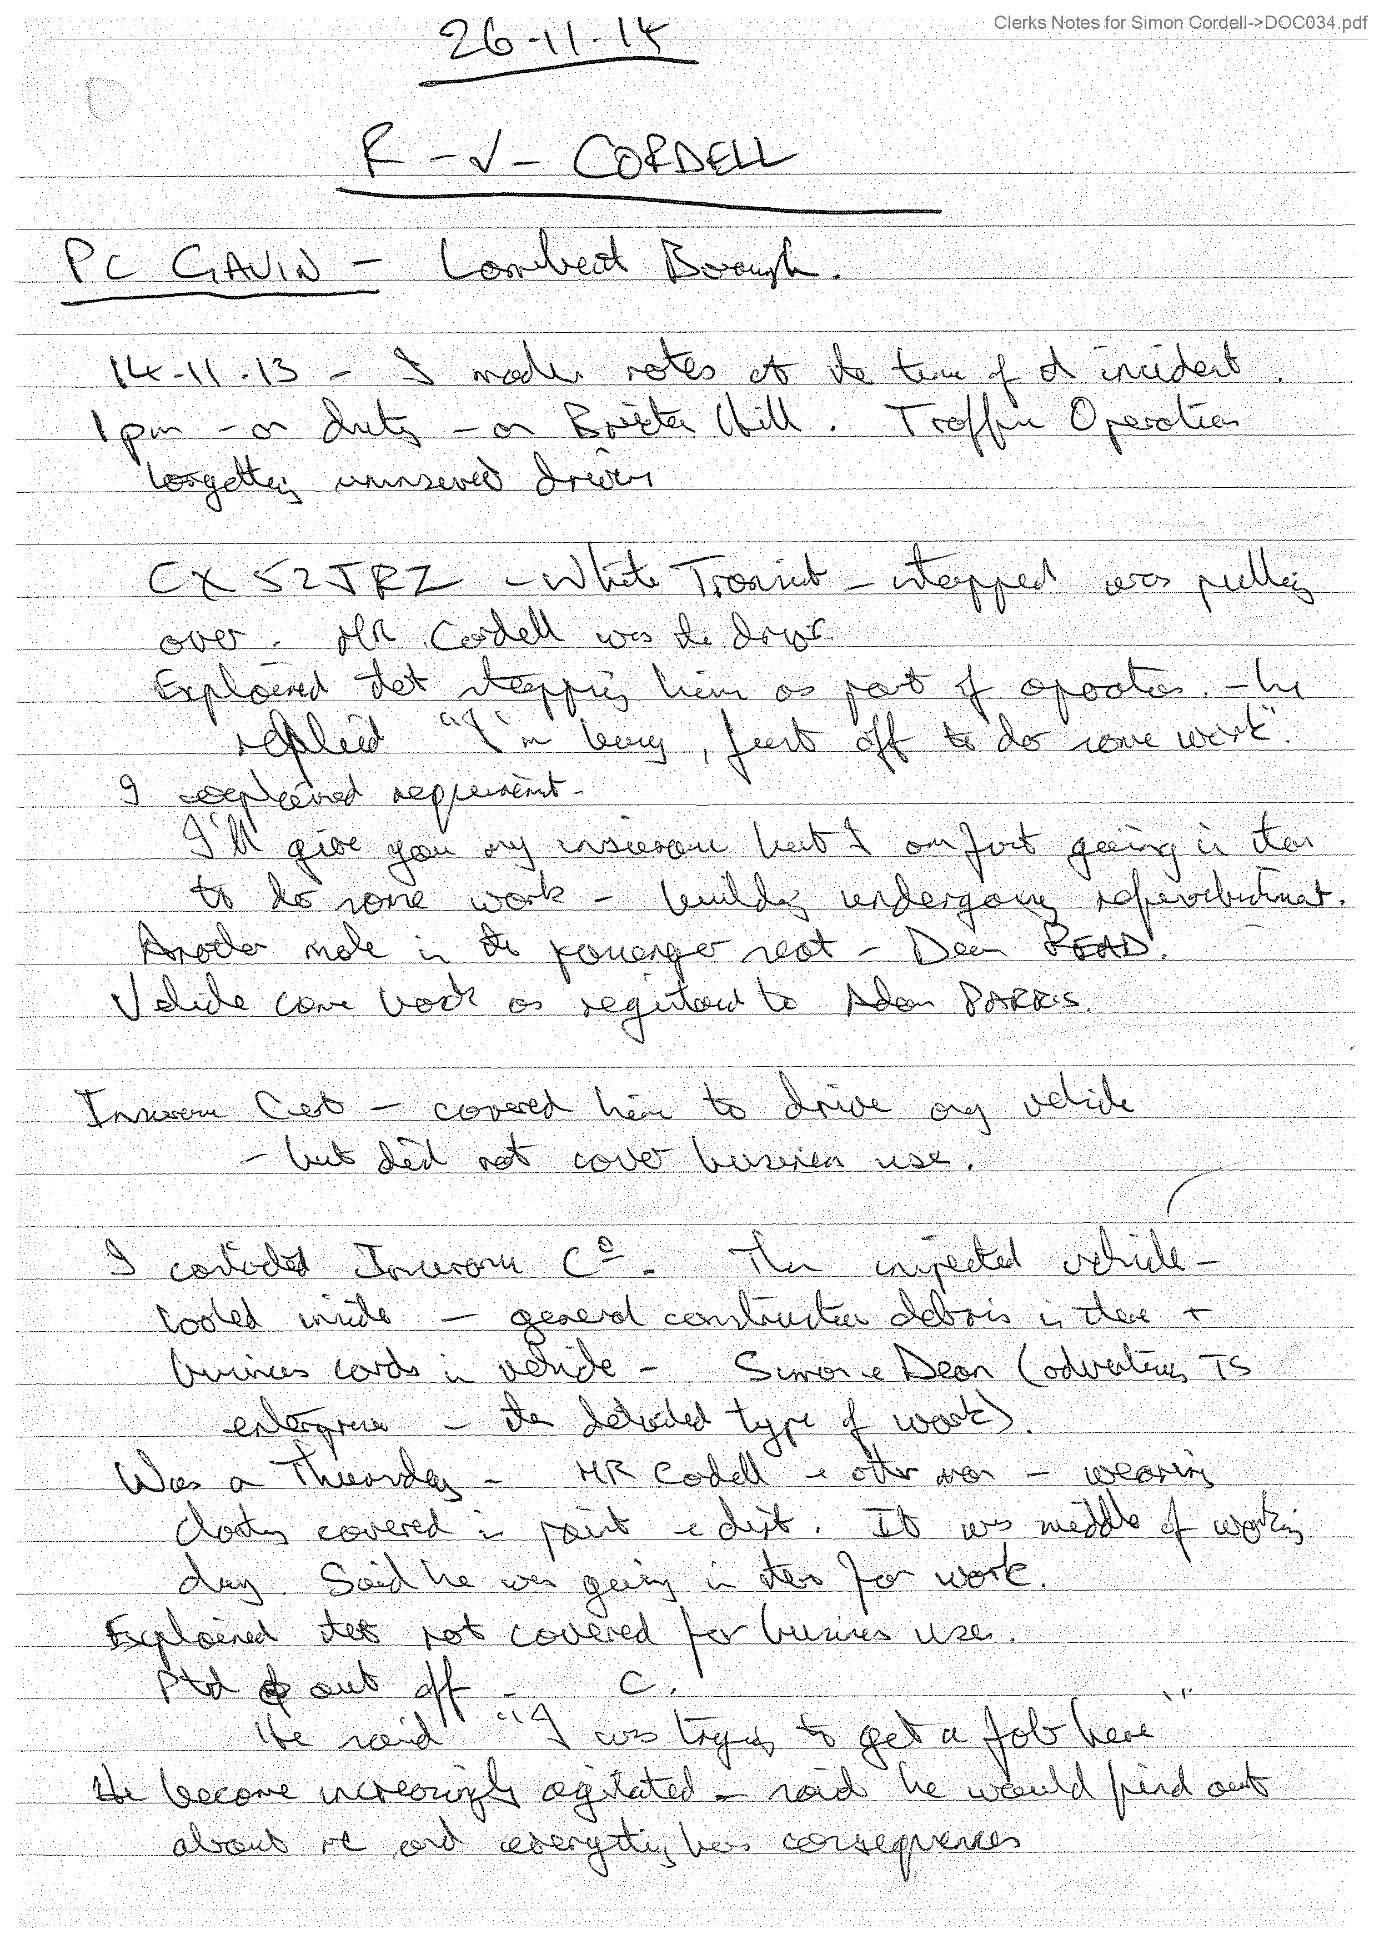 Clerks Notes for Simon Cordell->DOC034.pdf
26-11-14
R - v - CORDELL
PC GAVIN - Lambeth Borough.
14-11-13 - I made notes at the time of incident.
1pm - on duty - on Brixton Hill. Traffic Operation
targetting uninsured drivers
CX52JRZ - White Transit - stopped was pulling
over. MR Cordell was the driver.
Explained that stopping him as part of operation. - he
replied "I'm busy, just off to do some work".
I explained requirement -
I'll give you my insurance but I am just going in there
to do some work - building undergoing refurbishment.
Another male in the passenger seat - Dean READ.
Vehicle came back as registered to Adam PARRIS.
Insurance Cert - covered him to drive any vehicle
- but did not cover business use.
I contacted Insurance Co. Then inspected vehicle -
looked inside - general construction debris in there +
business cards in vehicle - Simon & Dean (advertising TS
enterprise - the detailed type of work).
Was a Thursday - MR Cordell & other man - wearing
clothes covered in paint & dust. It was middle of working
day. Said he was going in there for work.
Explained that not covered for business use.
Ptd out off - C.
He said "I was trying to get a job here"
He became increasingly agitated - said he would find out
about me and everything has consequences